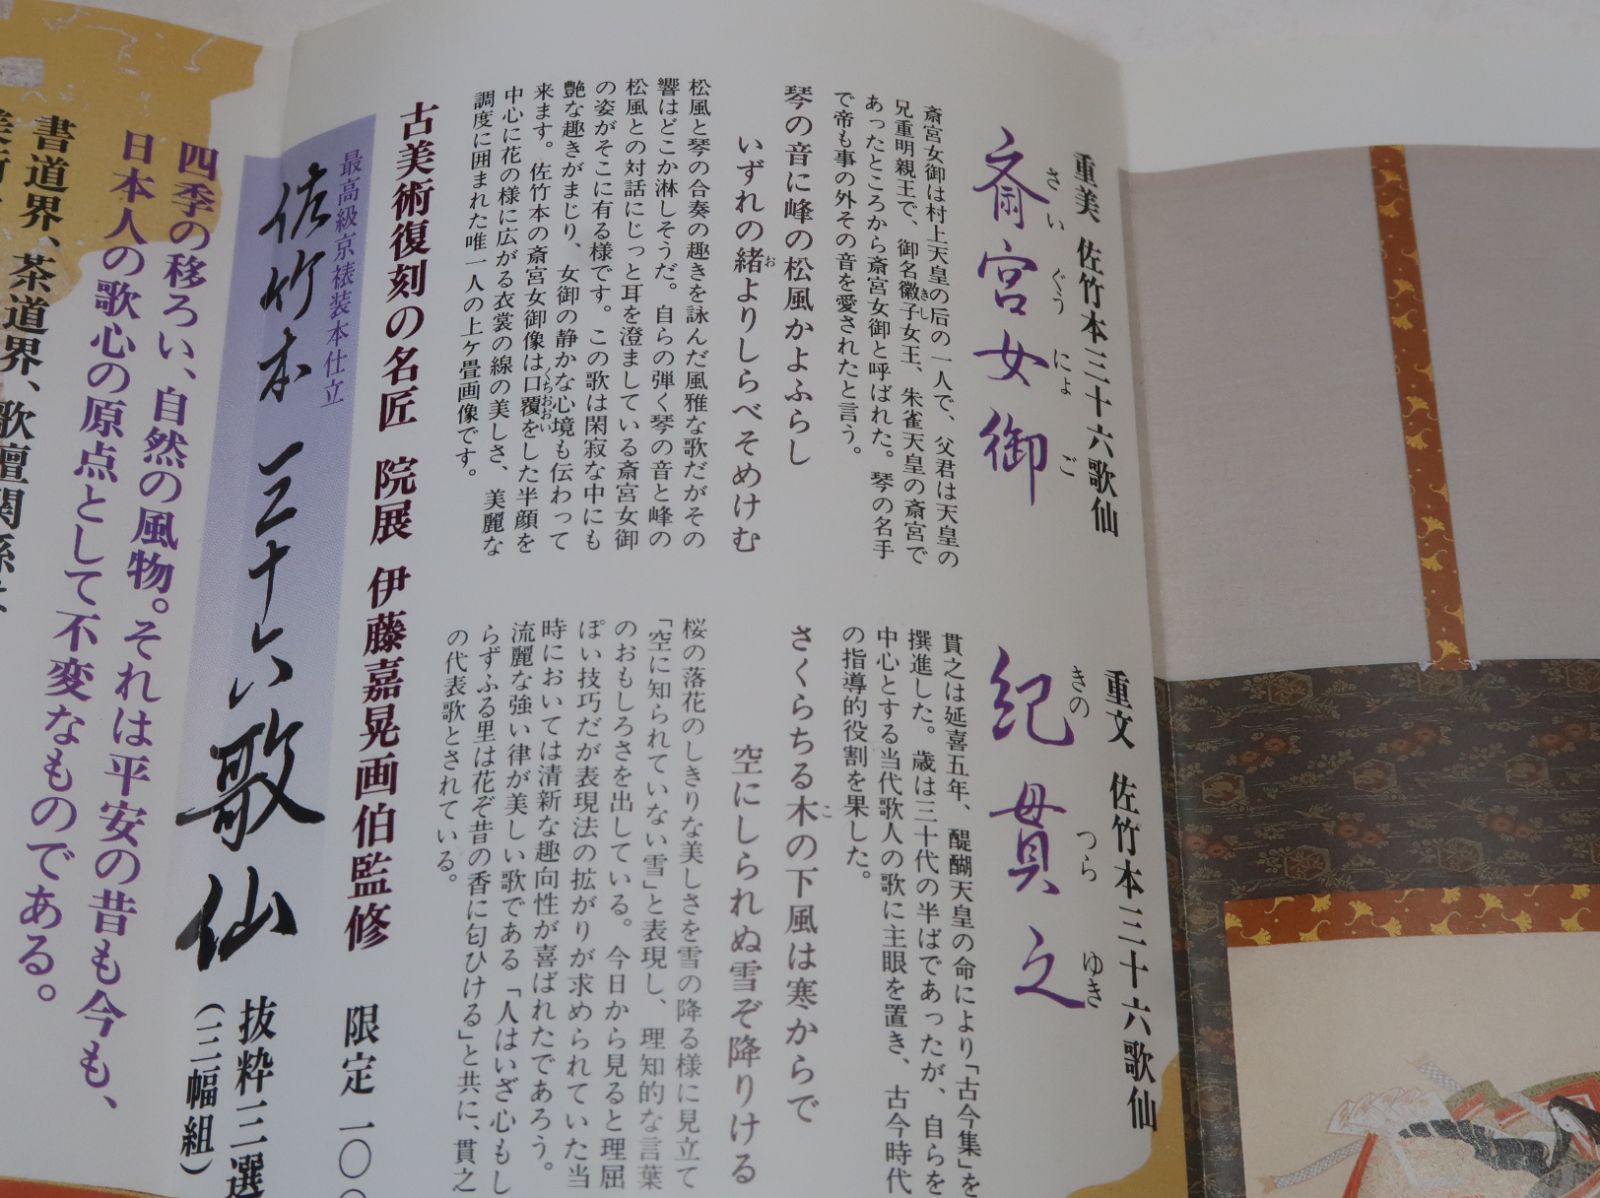 重美 佐竹本三十六歌仙
斎宮女御
さい ぐう にょ ご
斎宮女御は村上天皇の后の一人で、父君は天皇の
兄重明親王で、御名徽子女王、朱雀天皇の斎宮で
きし
あったところから斎宮女御と呼ばれた。琴の名手
で帝も事の外その音を愛されたと言う。
琴の音に峰の松風かよふらし
いずれの緒よりしらべそめけむ
お
松風と琴の合奏の趣きを詠んだ風雅な歌だがその
響はどこか淋しそうだ。自らの弾く琴の音と峰の
松風との対話にじっと耳を澄ましている斎宮女御
の姿がそこに有る様です。この歌は閑寂な中にも
艶な趣きがまじり、女御の静かな心境も伝わって
来ます。佐竹本の斎宮女御像は口覆をした半顔を
くちおおい
中心に花の様に広がる衣裳の線の美しさ、美麗な
調度に囲まれた唯一人の上ケ畳画像です。
重文 佐竹本三十六歌仙
紀貫之
きの つら ゆき
貫之は延喜五年、醍醐天皇の命により「古今集」を
撰進した。歳は三十代の半ばであったが、自らを
中心とする当代歌人の歌に主眼を置き、古今時代
の指導的役割を果した。
さくらちる木の下風は寒からで
こ
空にしられぬ雪ぞ降りける
桜の落花のしきりな美しさを雪の降る様に見立て
「空に知られていない雪」と表現し、理知的な言葉
のおもしろさを出している。今日から見ると理屈
ぽい技巧だが表現法の拡がりが求められていた当
時においては清新な趣向性が喜ばれたであろう。
流麗な強い律が美しい歌である「人はいざ心もし
らずふる里は花ぞ昔の香に匂ひける」と共に、貫之
の代表歌とされている。
古美術復刻の名匠 院展 伊藤嘉晃画伯監修 限定一〇〇
最高級京裱装本仕立
佐竹本 三十六歌仙 抜粋三選
（三幅組）
四季の移ろい、自然の風物。それは平安の昔も今も、
日本人の歌心の原点として不変なものである。
書道界、茶道界、歌壇関係